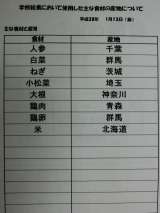 学校給食において使用した主な食材の産地について
平成28年 1月13日(水)
主な食材と産地
食材 産地
人参 千葉
白菜 群馬
ねぎ 茨城
小松菜 埼玉
大根 神奈川
鶏肉 青森
鶏卵 群馬
米 北海道